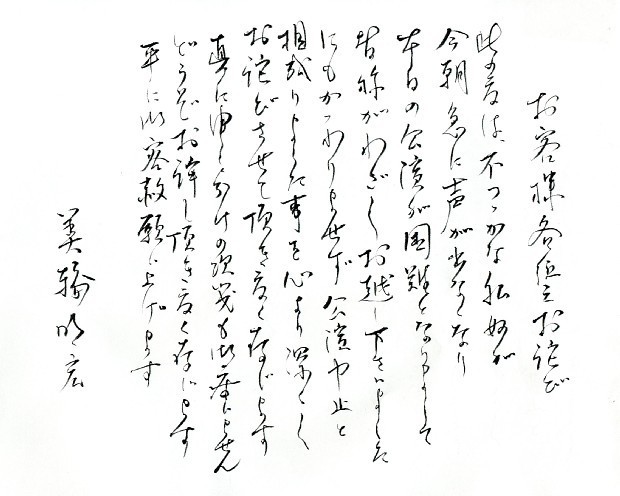 お客様各位にお詫び
此の度は、不つゝかな私めが
今朝急に声が出なくなり
本日の公演が困難となりまして
皆様がわざわざお越し下さいました
にもかゝわりませず公演中止と
相成りました事を心より深く
お詫びさせて頂き度く存じます
真に申し分けの次第も御座いません
どうぞお許し頂き度く存じます
平に御容赦願い上げます
美輪明宏